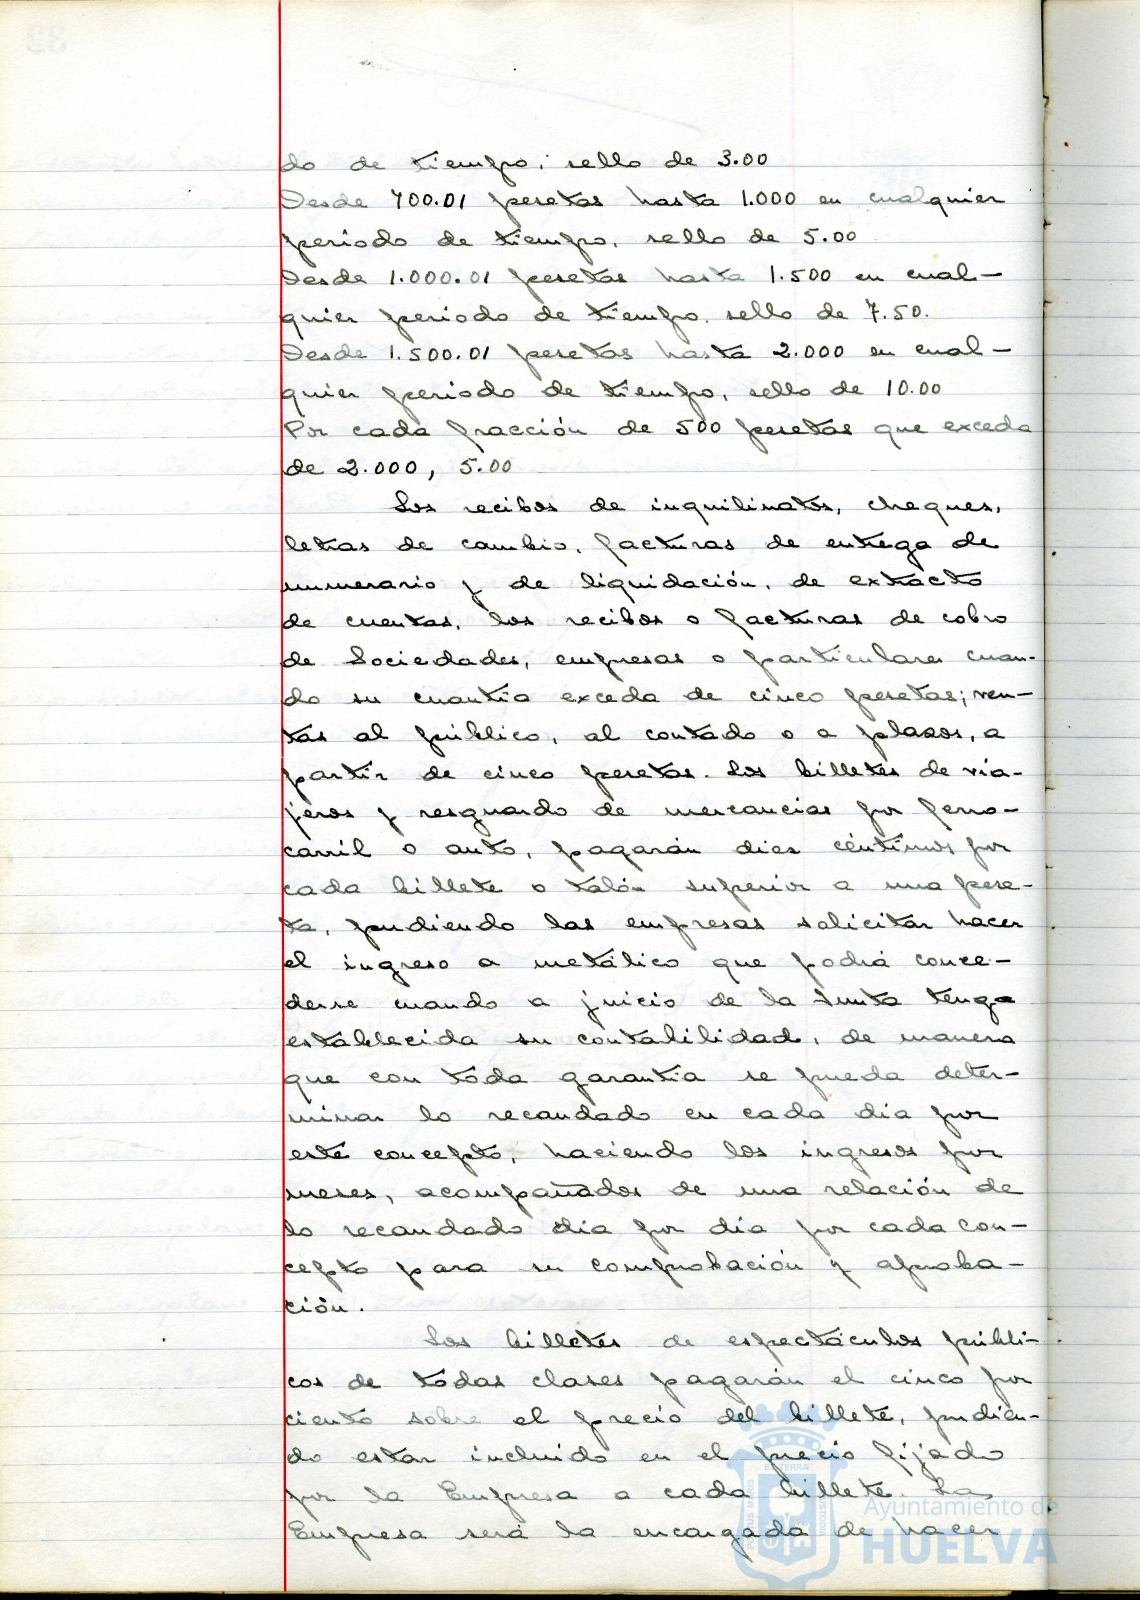 do de tiempo; sello de 3.00
Desde 700.01 pesetas hasta 1.000 en cualquier
periodo de tiempo, sello de 5.00
Desde 1.000.01 pesetas hasta 1.500 en cual-
quier periodo de tiempo, sello de 7.50.
Desde 1.500.01 pesetas hasta 2.000 en cual-
quier periodo de tiempo, sello de 10.00
Por cada fracción de 500 pesetas que exceda
de 2.000, 5.00
Los recibos de inquilinatos, cheques,
letras de cambio, facturas de entrega de
numerario y de liquidación, de extracto
de cuentas, los recibos o facturas de cobro
de Sociedades, empresas o particulares cuan-
do su cuantía exceda de cinco pesetas; ven-
tas al público, al contado o a plazos, a
partir de cinco pesetas. Los billetes de via-
jeros y resguardo de mercancías por ferro-
carril o auto, pagarán diez céntimos por
cada billete o talón superior a una pese-
ta, pudiendo las empresas solicitar hacer
el ingreso a metálico que podrá conce-
derse cuando a juicio de la Junta tenga
establecida su contabilidad, de manera
que con toda garantía se pueda deter-
minar lo recaudado en cada día por
este concepto, haciendo los ingresos por
meses, acompañados de una relación de
lo recaudado día por día por cada con-
cepto para su comprobación y aproba-
ción.
Los billetes de espectáculos públi-
cos de todas clases pagarán el cinco por
ciento sobre el precio del billete, pudien-
do estar incluido en el precio fijado
por la Empresa a cada billete. La
Empresa será la encargada de hacer
Ayuntamiento de
HUELVA